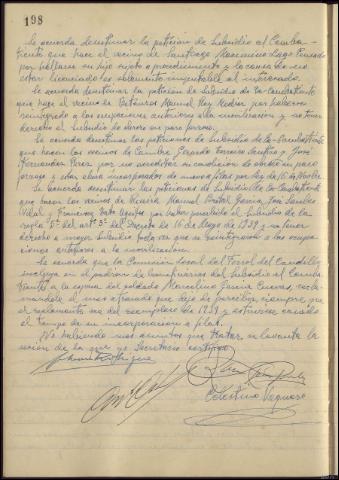 198
Se acuerda desestimar la petición de Subsidio al Comba-
tiente que hace el vecino de Santiago Maximino Lago Pensado
por hallarse su hijo sujeto a procedimiento y la causa de no
estar licenciado es solamente imputable al interesado.
Se acuerda desestimar la petición de Subsidio de Ex-Combatiente
que hace el vecino de Betanzos Manuel Rey por haberse
reintegrado a las ocupaciones anteriores a la movilización y no tener
derecho al Subsidio de obrero en paro forzoso.
Se acuerda desestimar las peticiones de Subsidio de Ex-Combatiente
que hacen los vecinos de Gerardo y José
Hernandez Perez por no acreditar su condición de obrero en paro
forzoso y estar incorporados de nuevo a filas por ley de 16 de
Se acuerda desestimar las peticiones de Subsidio de Ex-Combatiente
que hacen los vecinos de Manuel García, José Sanchez
Vilar y Francisco por haber percibido el Subsidio de la
regla 5ª del artº 3º del Decreto de 16 de Mayo de 1939 y no tener
derecho a mayor Subsidio toda vez que se reintegraron a las ocupa-
ciones anteriores a la movilización.
Se acuerda que la Comisión local del Ferrol del Caudillo,
incluya en el padrón de beneficiarios del Subsidio al Comba-
tiente a la esposa del soldado Marcelino García Cuevas, recla-
mándole el mes atrasado que dejó de percibir, siempre que
el reglamento sea del reemplazo de 1939 y estuviese casado
al tiempo de su incorporación a filas.
No habiendo mas asuntos que tratar se levanta la
sesión de la que yo Secretario certifico.
Celestino Vaquero